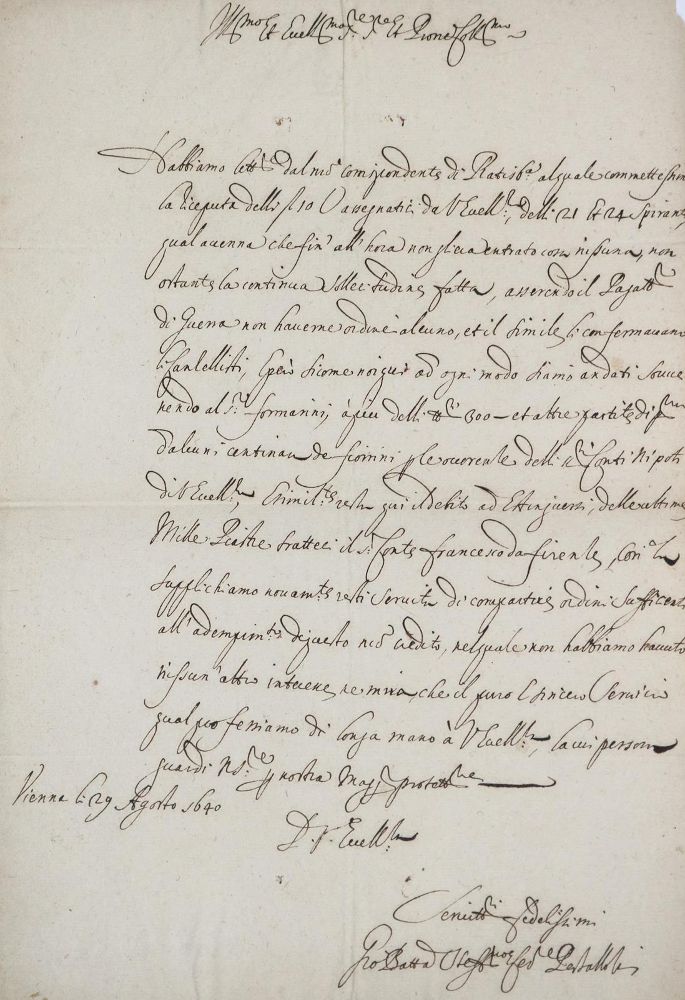 Ill.mo et Ecell.mo Sig.re S.re et Prone Coll.mo
Habbiamo lett.e dal nro corrispondente di Ratisb.a al quale commettessimo
la riceputa delli fl 10 assegnatici da V Ecell.za, delli 21 et 24 Spirante,
qual avenna che fin' all' hora non gli era entrato cosa nissuna, non
ostante la continua sollecitudine fatta, asserendo il Pagatt.re
di Guerra non haverne ordine alcuno, et il simile li confermavano
li Canzellisti, e però sicome noi qui ad ogni modo siamo andati sovve
nendo al S.r formarini, à più delli 300 et altre partite di
d'alcuni centinara de fiorini p le ocorenze delli ss.ri Conti Nipoti
di V Ecell.za, e simil.te resta qui il debito ad Estinguersi, delle ultime
Mille Piastre tratteci il S.r Conte francesco da firenze, Così
supplichiamo novam.te resti servita di compartire ordini sufficenti
all' adempim.to di questo nro credito, nel quale non habbiamo havuto
nissun' altro interesse ne mira, che il puro e sincero Servicio
qual professiamo di longa mano à V Ecell.za, la cui persona
guardi N S.re p nostra Magg.r protett.ne
Vienna li 29 Agosto 1640
D. V. Ecell.za
Servitt.ri fedelissimi
Gio Batta Pestalozzi